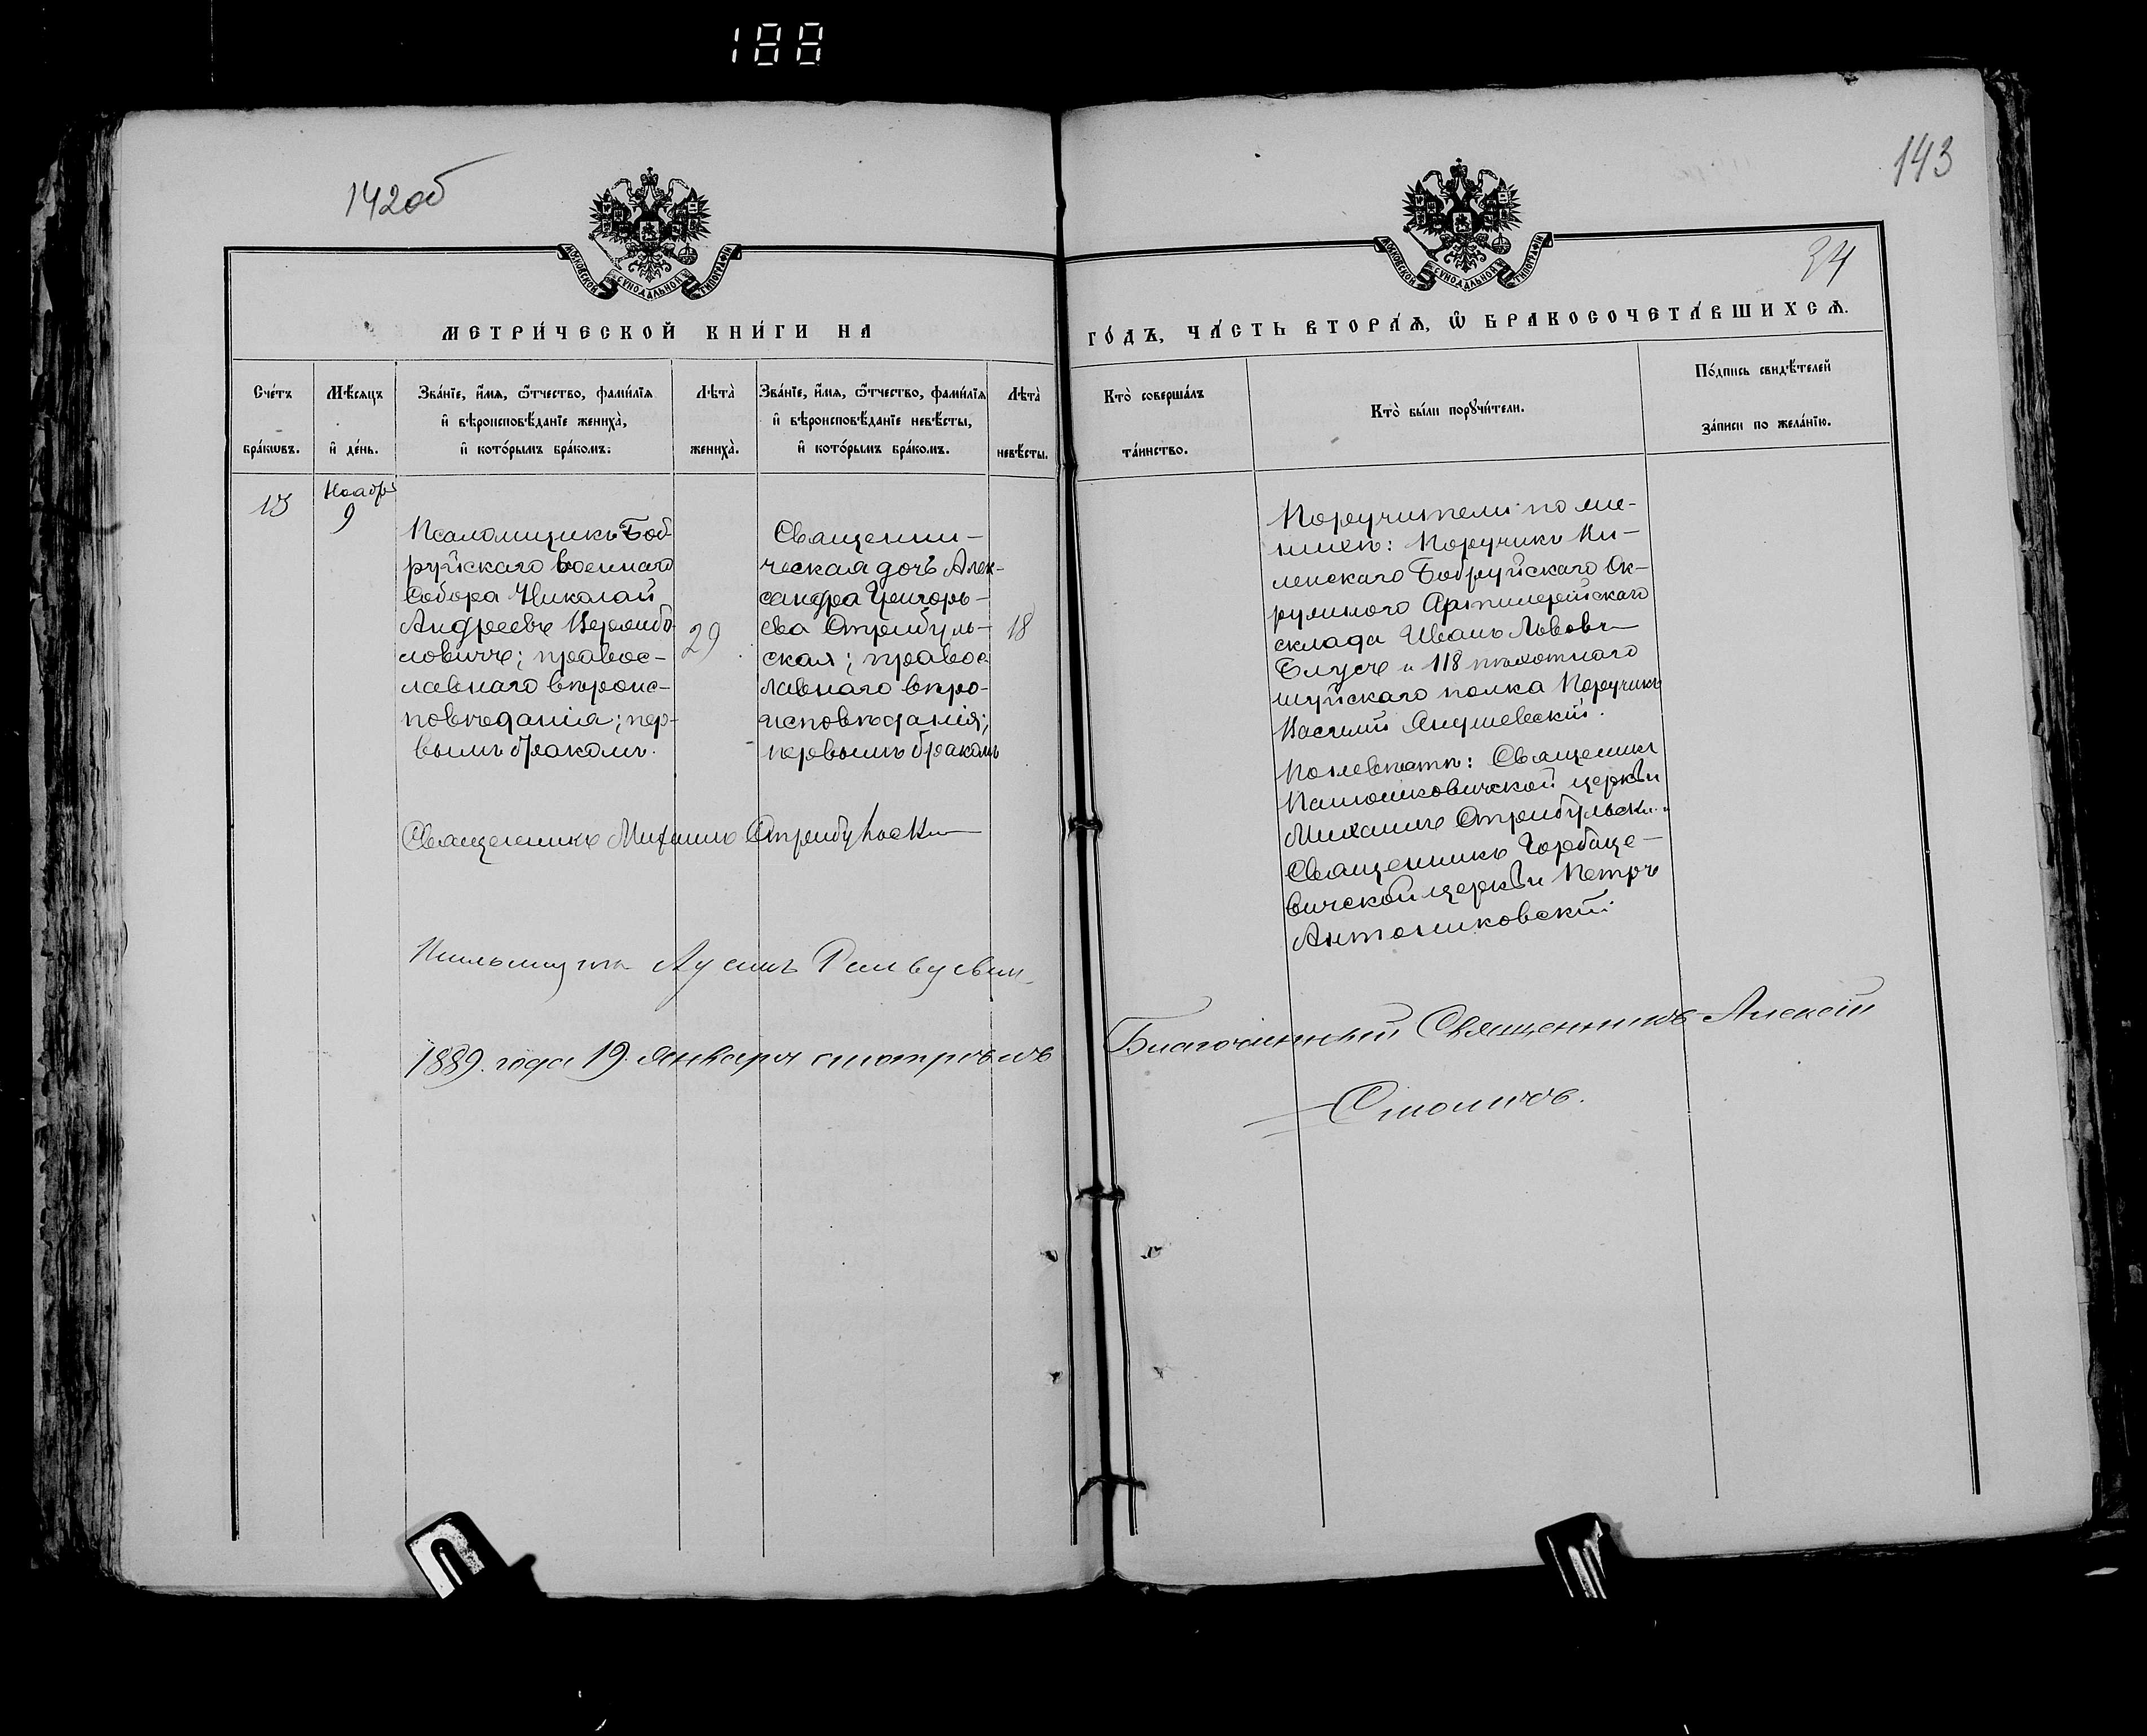 188
142об
143
34
МОСКОВСКОЙ СѴНОДАЛЬНОЙ ТИПОГРАФІИ
МОСКОВСКОЙ СѴНОДАЛЬНОЙ ТИПОГРАФІИ
МЕТРИ́ЧЕСКОЙ КНИ́ГИ НА
ГО́ДЪ, ЧА́СТЬ ВТОРА́Ѧ, Ѽ БРАКОСОЧЕТА́ВШИХСѦ.
Сче́тъ
бра́кѡвъ.
Мѣ́сяцъ
и҆ де́нь.
Зва́нїе, и҆́мѧ, ѻ҆́тчество, фами́лїѧ
и҆ вѣроисповѣ́данїе жениха̀,
и҆ кото́рымъ бра́комъ:
Лѣта̀
жениха̀.
Зва́нїе, и҆́мѧ, ѻ҆́тчество, фами́лїѧ
и҆ вѣроисповѣ́данїе невѣ́сты,
и҆ кото́рымъ бра́комъ.
Лѣта̀
невѣ́сты.
Кто̀ соверша́лъ
та́инство.
Кто̀ бы́ли порꙋчи́тели.
По́дпись свидѣ́телей
за́писи по жела́нїю.
13
Ноября
9
Псаломщикъ Боб-
руйскаго военнаго
Собора Николай
Андреевъ
ловичъ; правос-
лавнаго вѣроис-
повѣданія; пер-
вымъ бракомъ.
29
Священни-
ческая дочь Алек-
сандра Григорь-
ева Стрибуль-
ская; правос
лавнаго вѣро-
исповѣданія;
первымъ бракомъ
18
Поручители: по же-
нихѣ: Поручикъ Ви-
ленскаго Бобруйскаго Ок-
ружного Артилерійскаго
склада Иванъ Львовъ
и 118 пѣхотнаго
шуйскаго полка Поручикъ
Василій Янушевскій.
По невѣстѣ: Священникъ
церкви
Михаилъ Стрибульскій
Священникъ Горбаце-
вичской церкви Петръ
Антониковскій
Священникъ Михаилъ Стрибульскій
Псаломщикъ
1889. года 19. января смотрѣлъ
Благочинный Священникъ Алексій